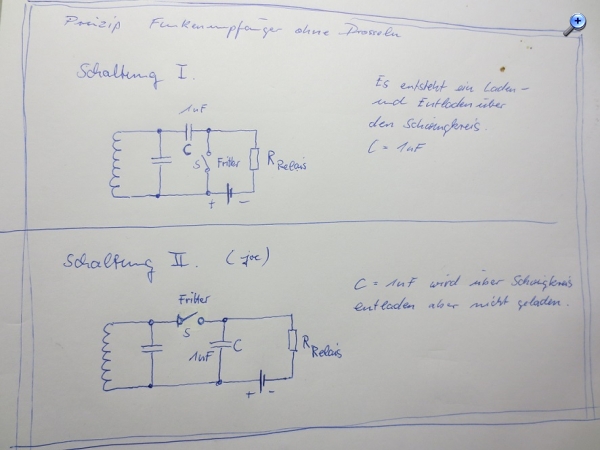 Prinzip Funkenempfänger ohne Drosseln
Schaltung I.
Es entsteht ein Laden-
und Entladen über
den Schwingkreis.
C = 1nF
1nF
C
S
Fritter
R Relais
+ -
Schaltung II. (-joe)
C = 1nF wird über Schwingkreis
entladen aber nicht geladen.
Fritter
S
1nF
C
R Relais
+ -